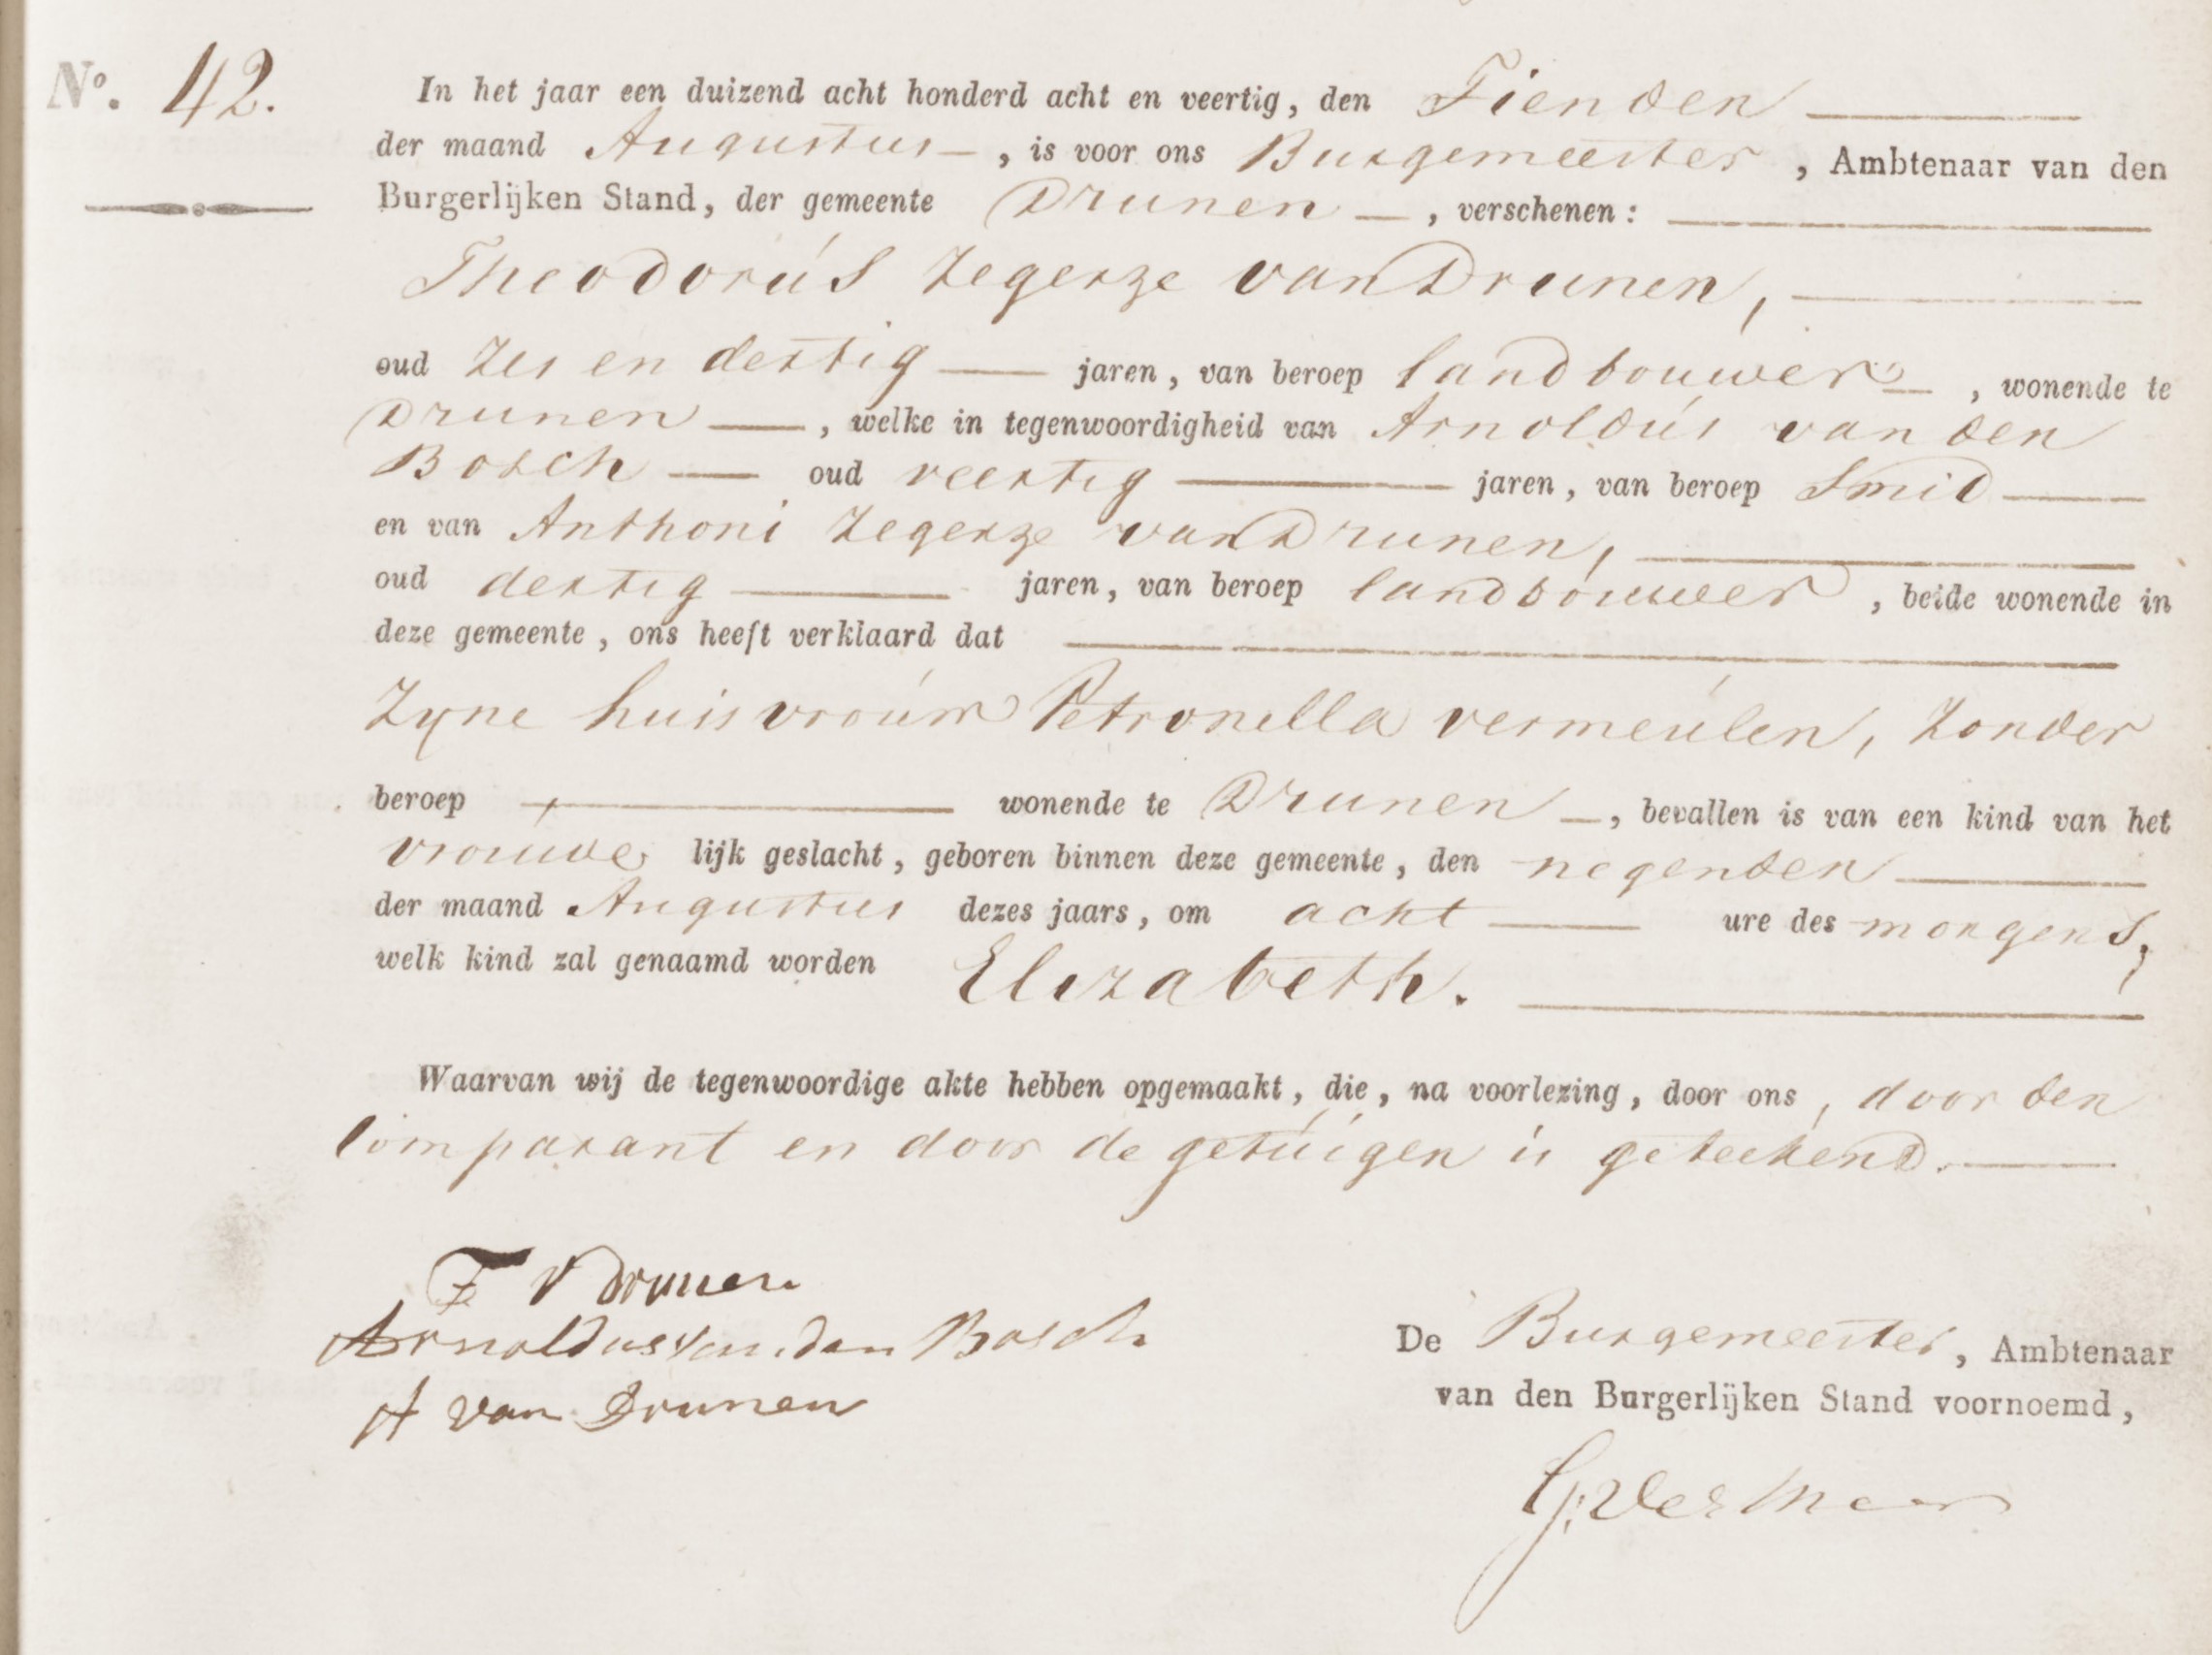 Nº. 42.
In het jaar een duizend acht honderd acht en veertig, den Tienden
der maand Augustus, is voor ons Burgemeester, Ambtenaar van den
Burgerlijken Stand, der gemeente Drunen, verschenen:
Theodorus Zegerze van Drunen,
oud Zes en dertig jaren, van beroep landbouwer, wonende te
Drunen, welke in tegenwoordigheid van Arnoldus van den
Bosch oud veertig jaren, van beroep Smid
en van Anthoni Zegerze van Drunen,
oud dertig jaren, van beroep landbouwer, beide wonende in
deze gemeente, ons heeft verklaard dat
Zyne huisvrouw Petronella vermeulen, Zonder
beroep wonende te Drunen, bevallen is van een kind van het
vrouwe lijk geslacht, geboren binnen deze gemeente, den negenden
der maand Augustus dezes jaars, om acht ure des morgens,
welk kind zal genaamd worden Elizabeth.
Waarvan wij de tegenwoordige akte hebben opgemaakt, die, na voorlezing, door ons, door den
Comparant en door de getuigen is geteekend.
T V Drunen
Arnoldus van den Bosch
A van Drunen
De Burgemeester, Ambtenaar
van den Burgerlijken Stand voornoemd,